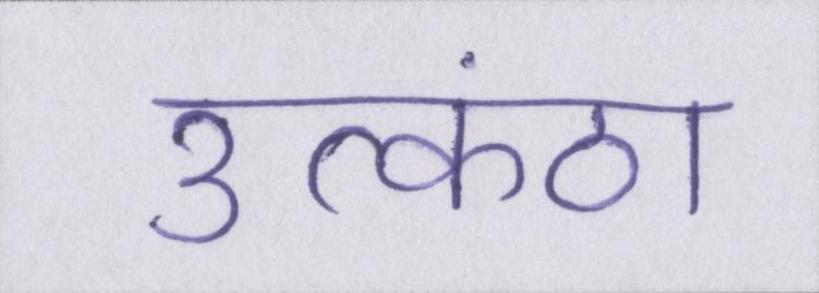 उत्कंठा